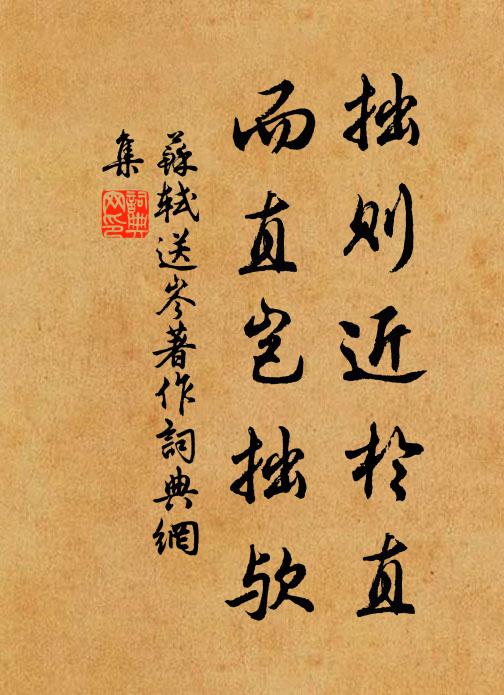 拙则近於直
而直岂拙欤
蘇軾送岑著作詞典網
集
詞典网印